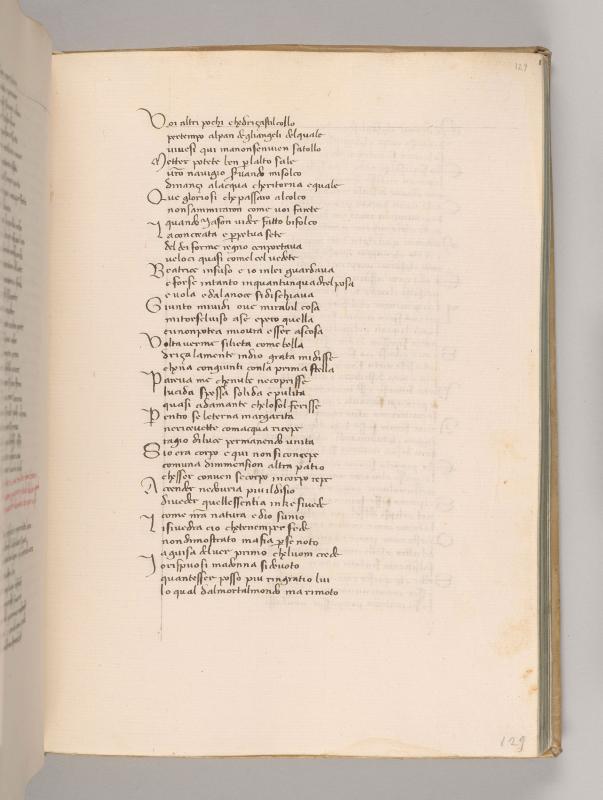 129
Voi altri pochi che driçastil collo
pertempo alpan degliangeli delquale
vivesi qui manonsenvien satollo
Metter potete ben p lalto sale
vrõ navigio servando misolco
dinançi alacqua cheritorna equale
Que gloriosi che passaro alcolco
nonsammiraron come voi farete
quando Iason vider fatto bifolco
La concreata e perpetua sete
del dei forme regno cenportava
veloci quasi comelcel vedete
Beatrice insuso e io inlei guardava
e forse intanto inquantunquadrel posa
e vola e dalanoce sidischiava
Giunto mividi ove mirabil cosa
mitorselviso ase epero quella
cuinonpotea miovra esser ascosa
Volta verme silieta come bella
driça lamente indio grata midisse
chena congiunti conla prima stella
Pareva me chenube necoprisse
lucida spessa solida e pulita
quasi adamante chelosol ferisse
Pentro se leterna margarita
nericevette comacqua ricepe
ragio diluce permanendo unita
Sio era corpo e qui non si concepe
comuna dimmension altra patio
chesser convien secorpo incorpo repe
Accender nedovria piu ildisio
diveder quellessentia inke sivede
come nrã natura e dio sunio
Li sivedra cio chetenem per fede
non dimostrato ma fia p se noto
a guisa delver primo cheluom crede
Io rispuosi madonna si devoto
quantesser posso piu ringratio lui
lo qual dalmortalmondo ma rimoto
129